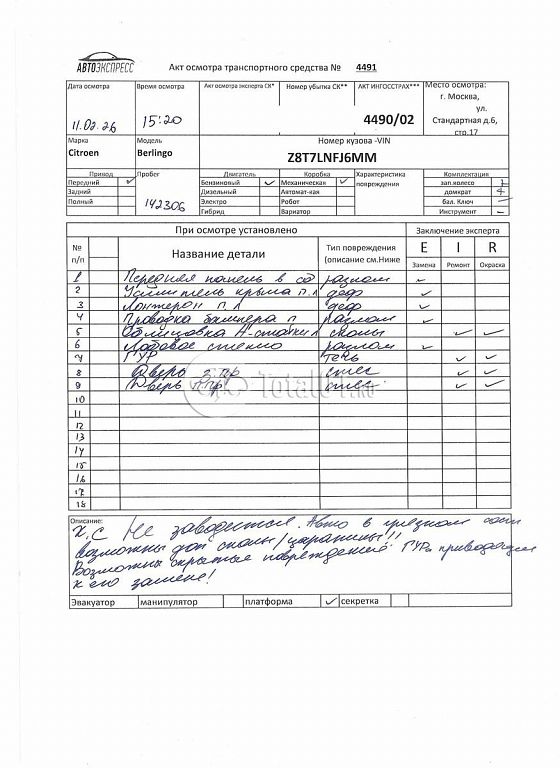 АВТОЭКСПРЕСС
Акт осмотра транспортного средства № 4491
Дата осмотра
Время осмотра
Акт осмотра эксперта СК*
Номер убытка СК**
АКТ ИНГОССТРАХ***
Место осмотра:
г. Москва,
ул.
Стандартная д.6,
стр.17
11.02.26
15:20
4490/02
Марка
Модель
Номер кузова -VIN
Citroen
Berlingo
Z8T7LNFJ6MM
Привод
Пробег
Двигатель
Коробка
Характеристика повреждения
Комплектация
Передний ✓
Бензиновый ✓
Механическая ✓
зап.колесо
Задний
Дизельный
Автомат-кая
домкрат
Полный
Электро
Робот
бал. Ключ
Гибрид
Вариатор
Инструмент
142306
При осмотре установлено
Заключение эксперта
№ п/п
Название детали
Тип повреждения
(описание см.Ниже
E I R
Замена Ремонт Окраска
1 Передняя панель в сб разлом ✓
2 Усилитель крыла п.л деф ✓
3 Лонжерон п л деф ✓
4 Проводка бампера п разлом ✓
5 Облицовка А-стойки л сколы ✓ ✓
6 Лобовое стекло разлом ✓
7 ГУР течь ✓ ✓
8 Дверь з пр ✓ ✓
9 Дверь п пр ✓ ✓
10
11
12
13
14
15
16
17
18
Total01.ru
Описание:
Х.С Не заводится. Авто в грязном сост
возможны доп сколы/царапины!!
Возможны скрытые повреждений ГУРа приводящие
к его замене!
Эвакуатор манипулятор платформа ✓ секретка